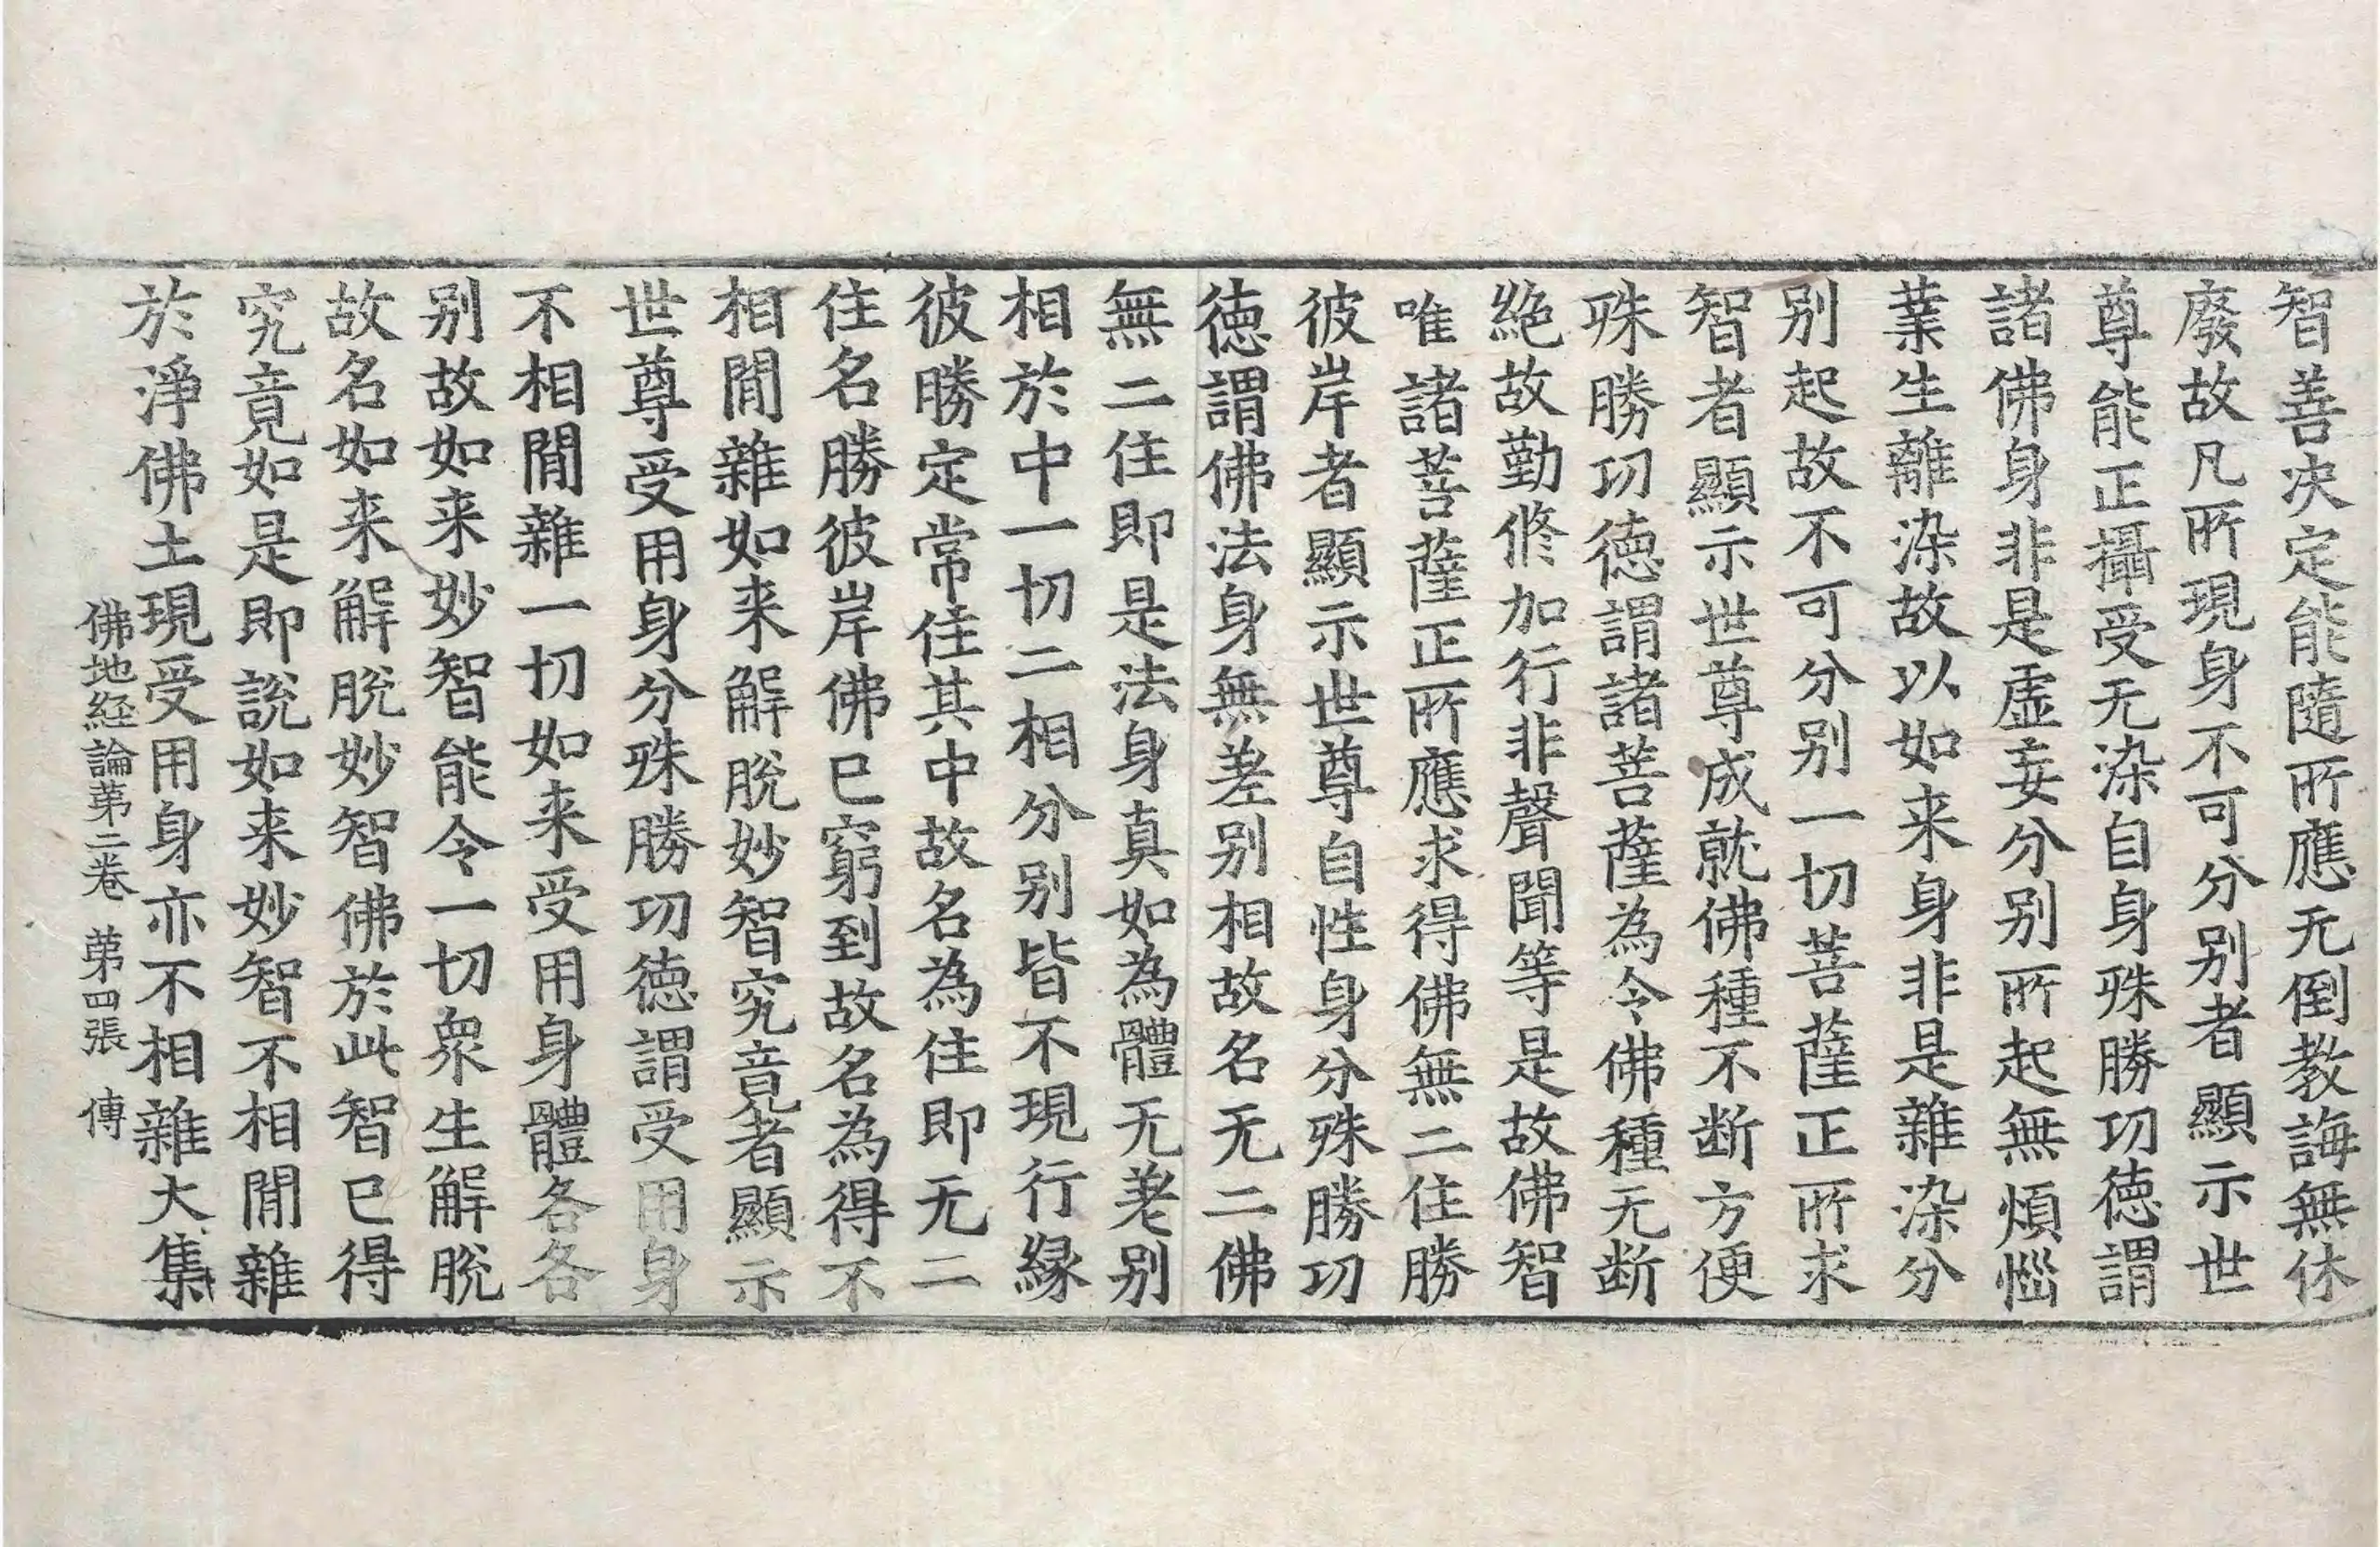 智善决定能隨所應无倒教誨無休
廢故凡所現身不可分别者顯示世
尊能正攝受无染自身殊勝功德謂
諸佛身非是虛妄分别所起無煩惱
業生離染故以如来身非是雜染分
别起故不可分别一切菩薩正所求
智者顯示世尊成就佛種不断方便
殊勝功德謂諸菩薩為令佛種无断
絶故勤修加行非聲聞等是故佛智
唯諸菩薩正所應求得佛無二住勝
彼岸者顯示世尊自性身分殊勝功
德謂佛法身無差别相故名无二佛
無二住即是法身真如為體无差别
相於中一切二相分别皆不現行縁
彼勝定常住其中故名為住即无二
住名勝彼岸佛已窮到故名為得不
相閒雜如来解脫妙智究竟者顯示
世尊受用身分殊勝功德謂受用身
不相閒雜一切如来受用身體各各
别故如来妙智能令一切衆生解脫
故名如来解脫妙智佛於此智已得
究竟如是即說如来妙智不相閒雜
於淨佛土現受用身亦不相雜大集
佛地経論苐二卷 苐四張 傳